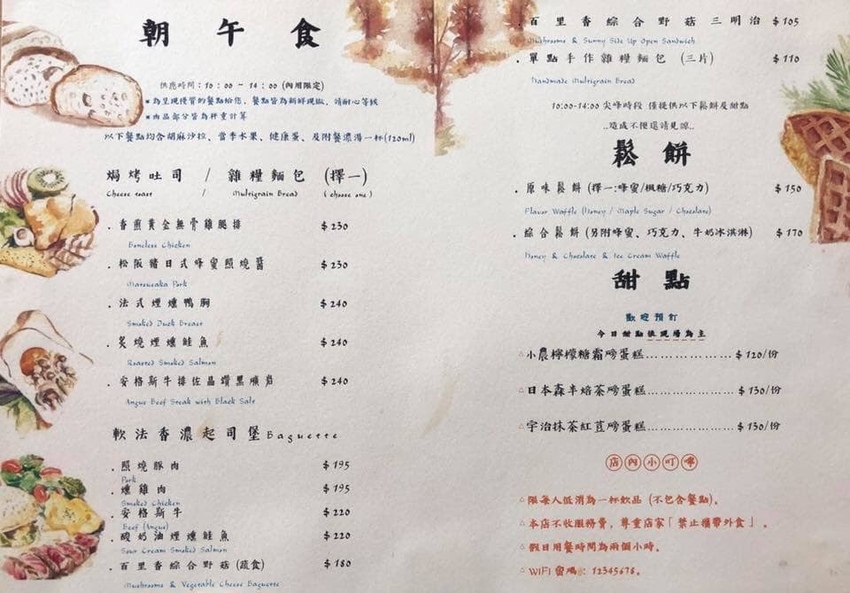 朝午食
供應時間：10：00 – 14：00 (內用限定)
★為呈現優質的餐點給您，餐點皆為新鮮現做，請耐心等候
★肉品部分皆為秤重計算
以下餐點均含胡麻沙拉、當季水果、健康蛋、及附餐濃湯一杯(120ml)
焗烤吐司 / 雜糧麵包 (擇一)
Cheese toast / Multigrain Bread (choose one)
．香煎黃金無骨雞腿排 $230
Boneless Chicken
．松阪豬日式蜂蜜照燒醬 $230
Matsusaka Pork
．法式煙燻鴨胸 $240
Smoked Duck Breast
．炙燒煙燻鮭魚 $240
Roasted Smoked Salmon
．安格斯牛排佐晶鑽黑曠岩 $240
Angus Beef Steak with Black Salt
軟法香濃起司堡Baguette
．照燒豚肉 $195
Pork
．燻雞肉 $195
Smoked Chicken
．安格斯牛 $220
Beef (Angus)
．酸奶油煙燻鮭魚 $220
Sour Cream Smoked Salmon
．百里香綜合野菇(蔬食) $180
Mushrooms & Vegetable Cheese Baguette
．百里香綜合野菇三明治 $105
Mushrooms & Sunny Side Up Open Sandwich
．單點手作雜糧麵包 (三片) $110
Handmade Multigrain Bread
10:00-14:00 尖峰時段 僅提供以下鬆餅及甜點
..造成不便還請見諒..
鬆餅
．原味鬆餅(擇一:蜂蜜/楓糖/巧克力) $150
Flavor Waffle (Honey / Maple Sugar / Chocolate)
．綜合鬆餅(另附蜂蜜、巧克力、牛奶冰淇淋) $170
Honey & Chocolate & Ice Cream Waffle
甜點
歡迎預訂
今日甜點依現場為主
小農檸檬糖霜磅蛋糕………………$120/份
日本森半焙茶磅蛋糕………………$130/份
宇治抹茶紅荳磅蛋糕………………$130/份
店內小叮嚀
限每人低消為一杯飲品 (不包含餐點)。
本店不收服務費，尊重店家「禁止攜帶外食」。
假日用餐時間為兩個小時。
WIFI 密碼：12345678。